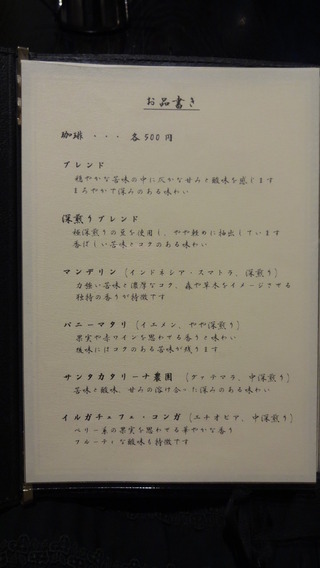 お品書き
珈琲 ・・・ 各500円
ブレンド
穏やかな苦味の中に仄かな甘みと酸味を感じます
まろやかで深みのある味わい
深煎りブレンド
極深煎りの豆を使用し、やや軽めに抽出しています
香ばしい苦味とコクのある味わい
マンデリン (インドネシア・スマトラ、深煎り)
力強い苦味と濃厚なコク、森や草木をイメージさせる
独特の香りが特徴です
バニーマタリ (イエメン、やや深煎り)
果実や赤ワインを思わせる香りと味わい
後味にはコクのある苦味が残ります
サンタカタリーナ農園 (グァテマラ、中深煎り)
苦味と酸味、甘みの溶け合った深みのある味わい
イルガチェフェ・コンガ (エチオピア、中深煎り)
ベリー系の果実を思わせる華やかな香り
フルーティな酸味も特徴です